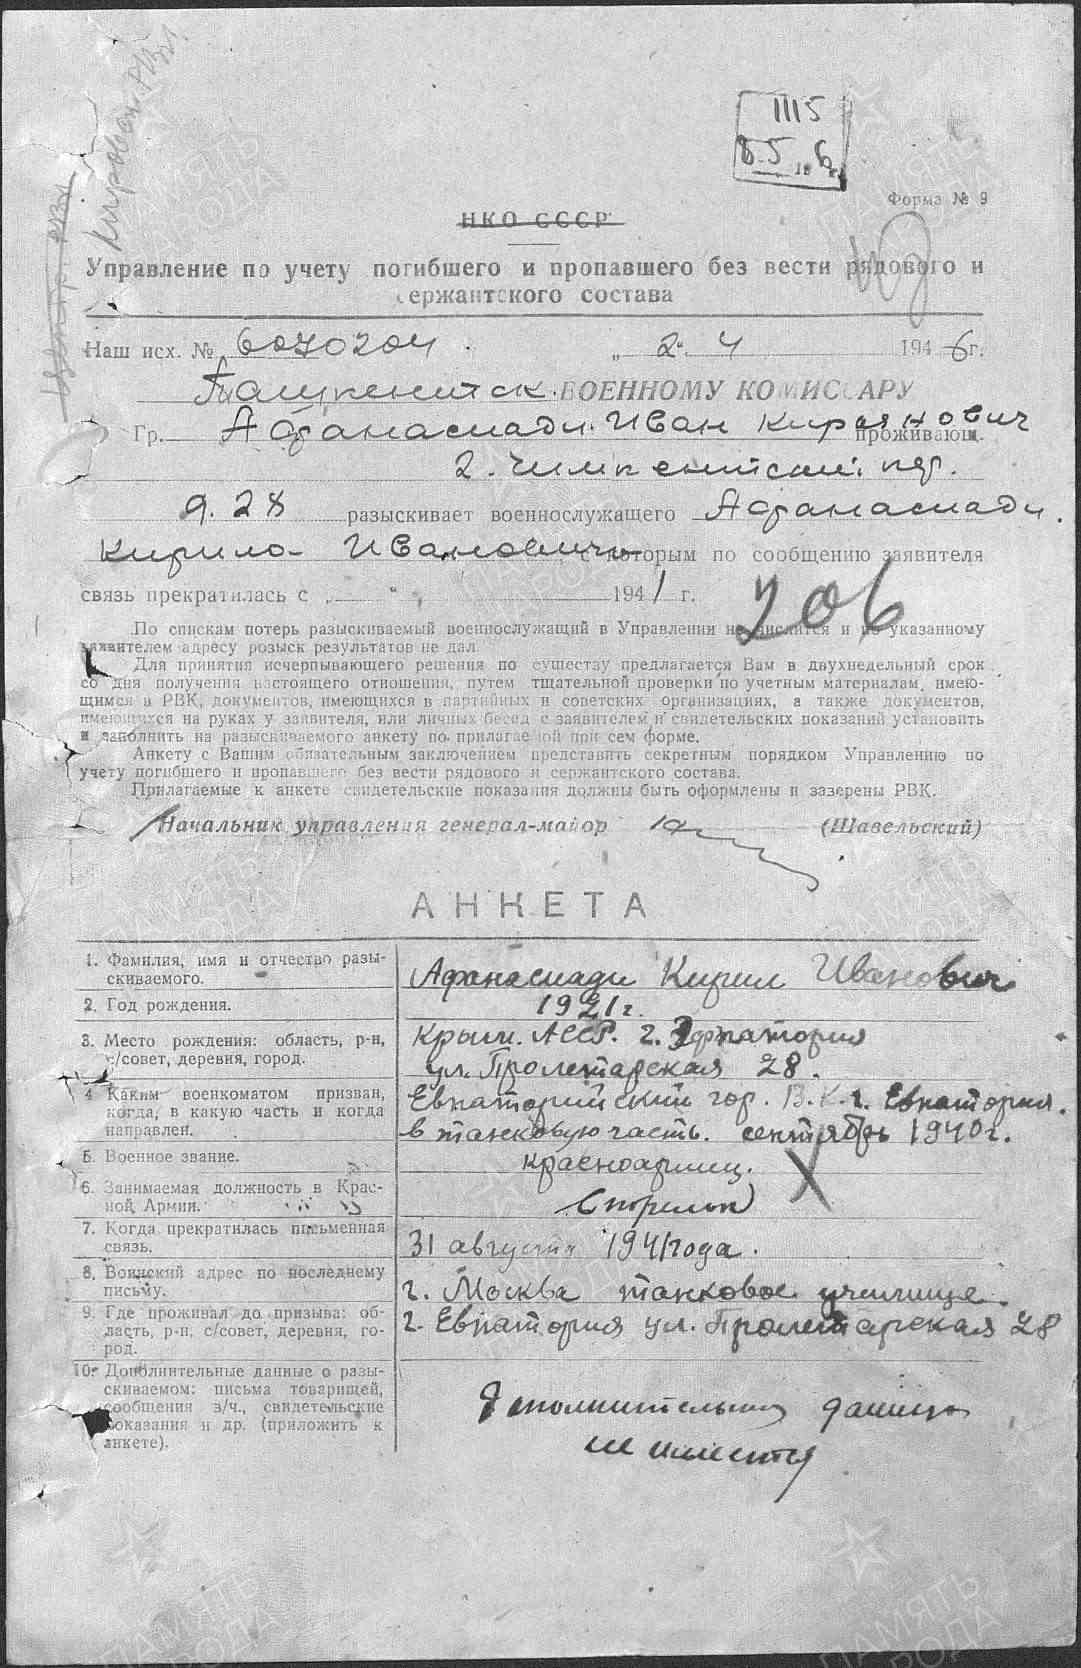 Кировск. РВК
Центр. РВК
1115
8.5 1946
Форма № 9
НКО СССР
Управление по учету погибшего и пропавшего без вести рядового и
сержантского состава
Наш исх. № 6070204. „2“ 4 1946 г.
Ташкентск. ВОЕННОМУ КОМИССАРУ
Гр. Афанасиади Иван Кирьянович проживающ.
2. Чимкентский пер.
д. 28 разыскивает военнослужащего Афанасиади
Кирило Ивановича с которым по сообщению заявителя
связь прекратилась с „ “ 1941 г.
206
По спискам потерь разыскиваемый военнослужащий в Управлении не числится и по указанному
заявителем адресу розыск результатов не дал.
Для принятия исчерпывающего решения по существу предлагается Вам в двухнедельный срок
со дня получения настоящего отношения, путем тщательной проверки по учетным материалам, имею-
щимся в РВК, документов, имеющихся в партийных и советских организациях, а также документов,
имеющихся на руках у заявителя, или личных бесед с заявителем и свидетельских показаний установить
и заполнить на разыскиваемого анкету по прилагаемой при сем форме.
Анкету с Вашим обязательным заключением представить секретным порядком Управлению по
учету погибшего и пропавшего без вести рядового и сержантского состава.
Прилагаемые к анкете свидетельские показания должны быть оформлены и заверены РВК.
Начальник управления генерал-майор (Шавельский)
АНКЕТА
1. Фамилия, имя и отчество разы-
скиваемого.
Афанасиади Кирил Иванович
2. Год рождения.
1921 г.
3. Место рождения: область, р-н,
с/совет, деревня, город.
Крым. АССР. г. Эфпатория
ул. Пролетарская 28.
4. Каким военкоматом призван,
когда, в какую часть и когда
направлен.
Евпаторийский гор. В.К. г. Евпатория.
в танковую часть. сентябрь 1940 г.
5. Военное звание.
красноармиец.
6. Занимаемая должность в Крас-
ной Армии.
Стрелок
7. Когда прекратилась письменная
связь.
31 августа 1941 года.
8. Воинский адрес по последнему
письму.
г. Москва танковое училище.
9. Где проживал до призыва: об-
ласть, р-н, с/совет, деревня, го-
род.
г. Евпатория ул. Пролетарская 28
10. Дополнительные данные о разы-
скиваемом: письма товарищей,
сообщения в/ч., свидетельские
показания и др. (приложить к
анкете).
Дополнительных данных
не имеется